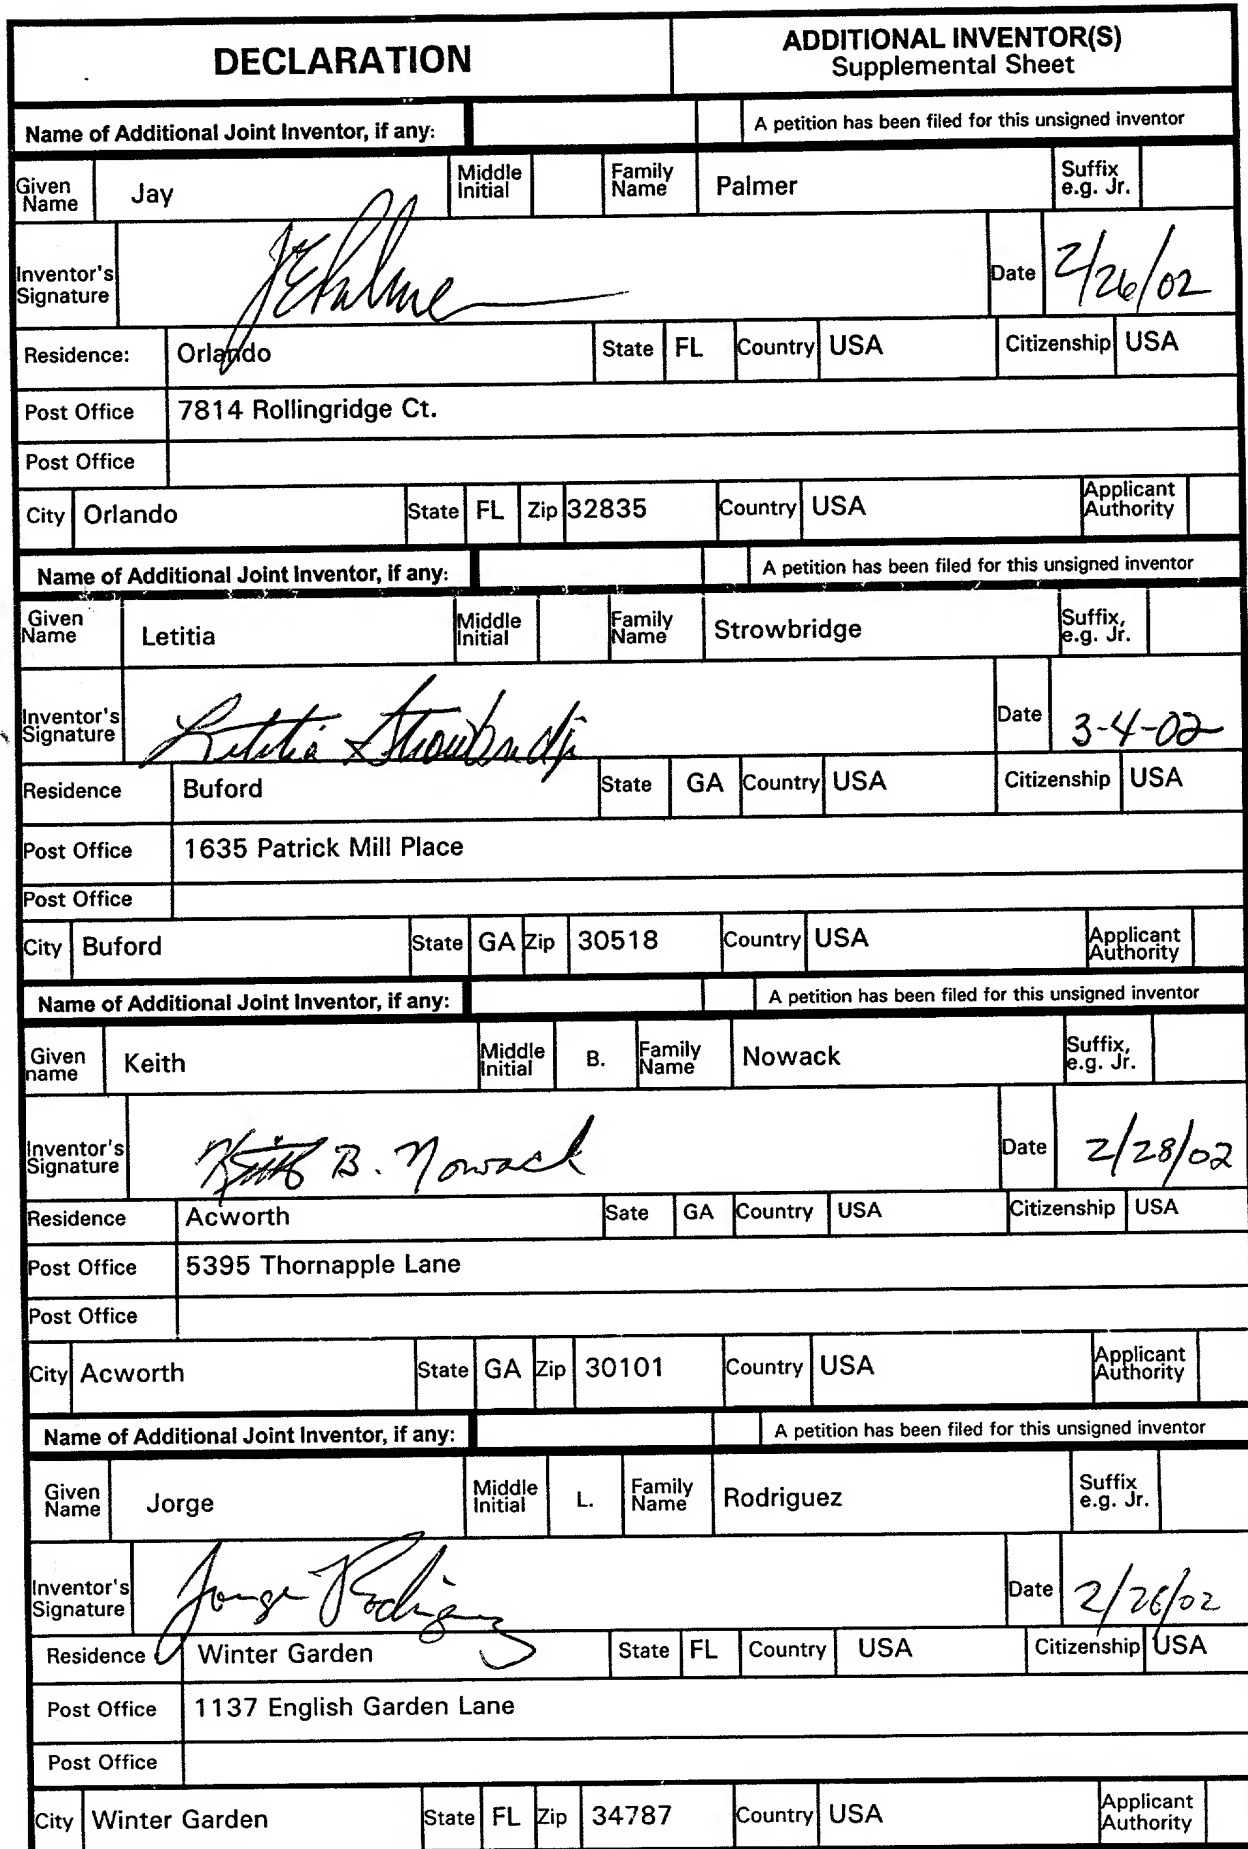 DECLARATION
ADDITIONAL INVENTOR(S)
Supplemental Sheet
Name of Additional Joint Inventor, if any:
A petition has been filed for this unsigned inventor
Given Name Jay Middle Initial Family Name Palmer Suffix e.g. Jr.
Inventor's Signature JEPalmer Date 2/26/02
Residence: Orlando State FL Country USA Citizenship USA
Post Office 7814 Rollingridge Ct.
Post Office
City Orlando State FL Zip 32835 Country USA Applicant Authority
Name of Additional Joint Inventor, if any:
A petition has been filed for this unsigned inventor
Given Name Letitia Middle Initial Family Name Strowbridge Suffix, e.g. Jr.
Inventor's Signature Letitia Strowbridge Date 3-4-02
Residence Buford State GA Country USA Citizenship USA
Post Office 1635 Patrick Mill Place
Post Office
City Buford State GA Zip 30518 Country USA Applicant Authority
Name of Additional Joint Inventor, if any:
A petition has been filed for this unsigned inventor
Given name Keith Middle Initial B. Family Name Nowack Suffix, e.g. Jr.
Inventor's Signature Keith B. Nowack Date 2/28/02
Residence Acworth Sate GA Country USA Citizenship USA
Post Office 5395 Thornapple Lane
Post Office
City Acworth State GA Zip 30101 Country USA Applicant Authority
Name of Additional Joint Inventor, if any:
A petition has been filed for this unsigned inventor
Given Name Jorge Middle Initial L. Family Name Rodriguez Suffix e.g. Jr.
Inventor's Signature Jorge Rodriguez Date 2/26/02
Residence Winter Garden State FL Country USA Citizenship USA
Post Office 1137 English Garden Lane
Post Office
City Winter Garden State FL Zip 34787 Country USA Applicant Authority